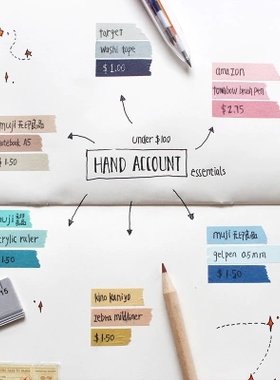 target
washi tape
$1.00
amazon
tombow brush pen
$2.75
muji 無印良品
notebook A5
$1.50
under $100
HAND ACCOUNT
essentials
muji
acrylic ruler
1.50
muji 無印良品
gel pen 0.5mm
$1.50
kino kuniya
zebra mildliner
$2.50